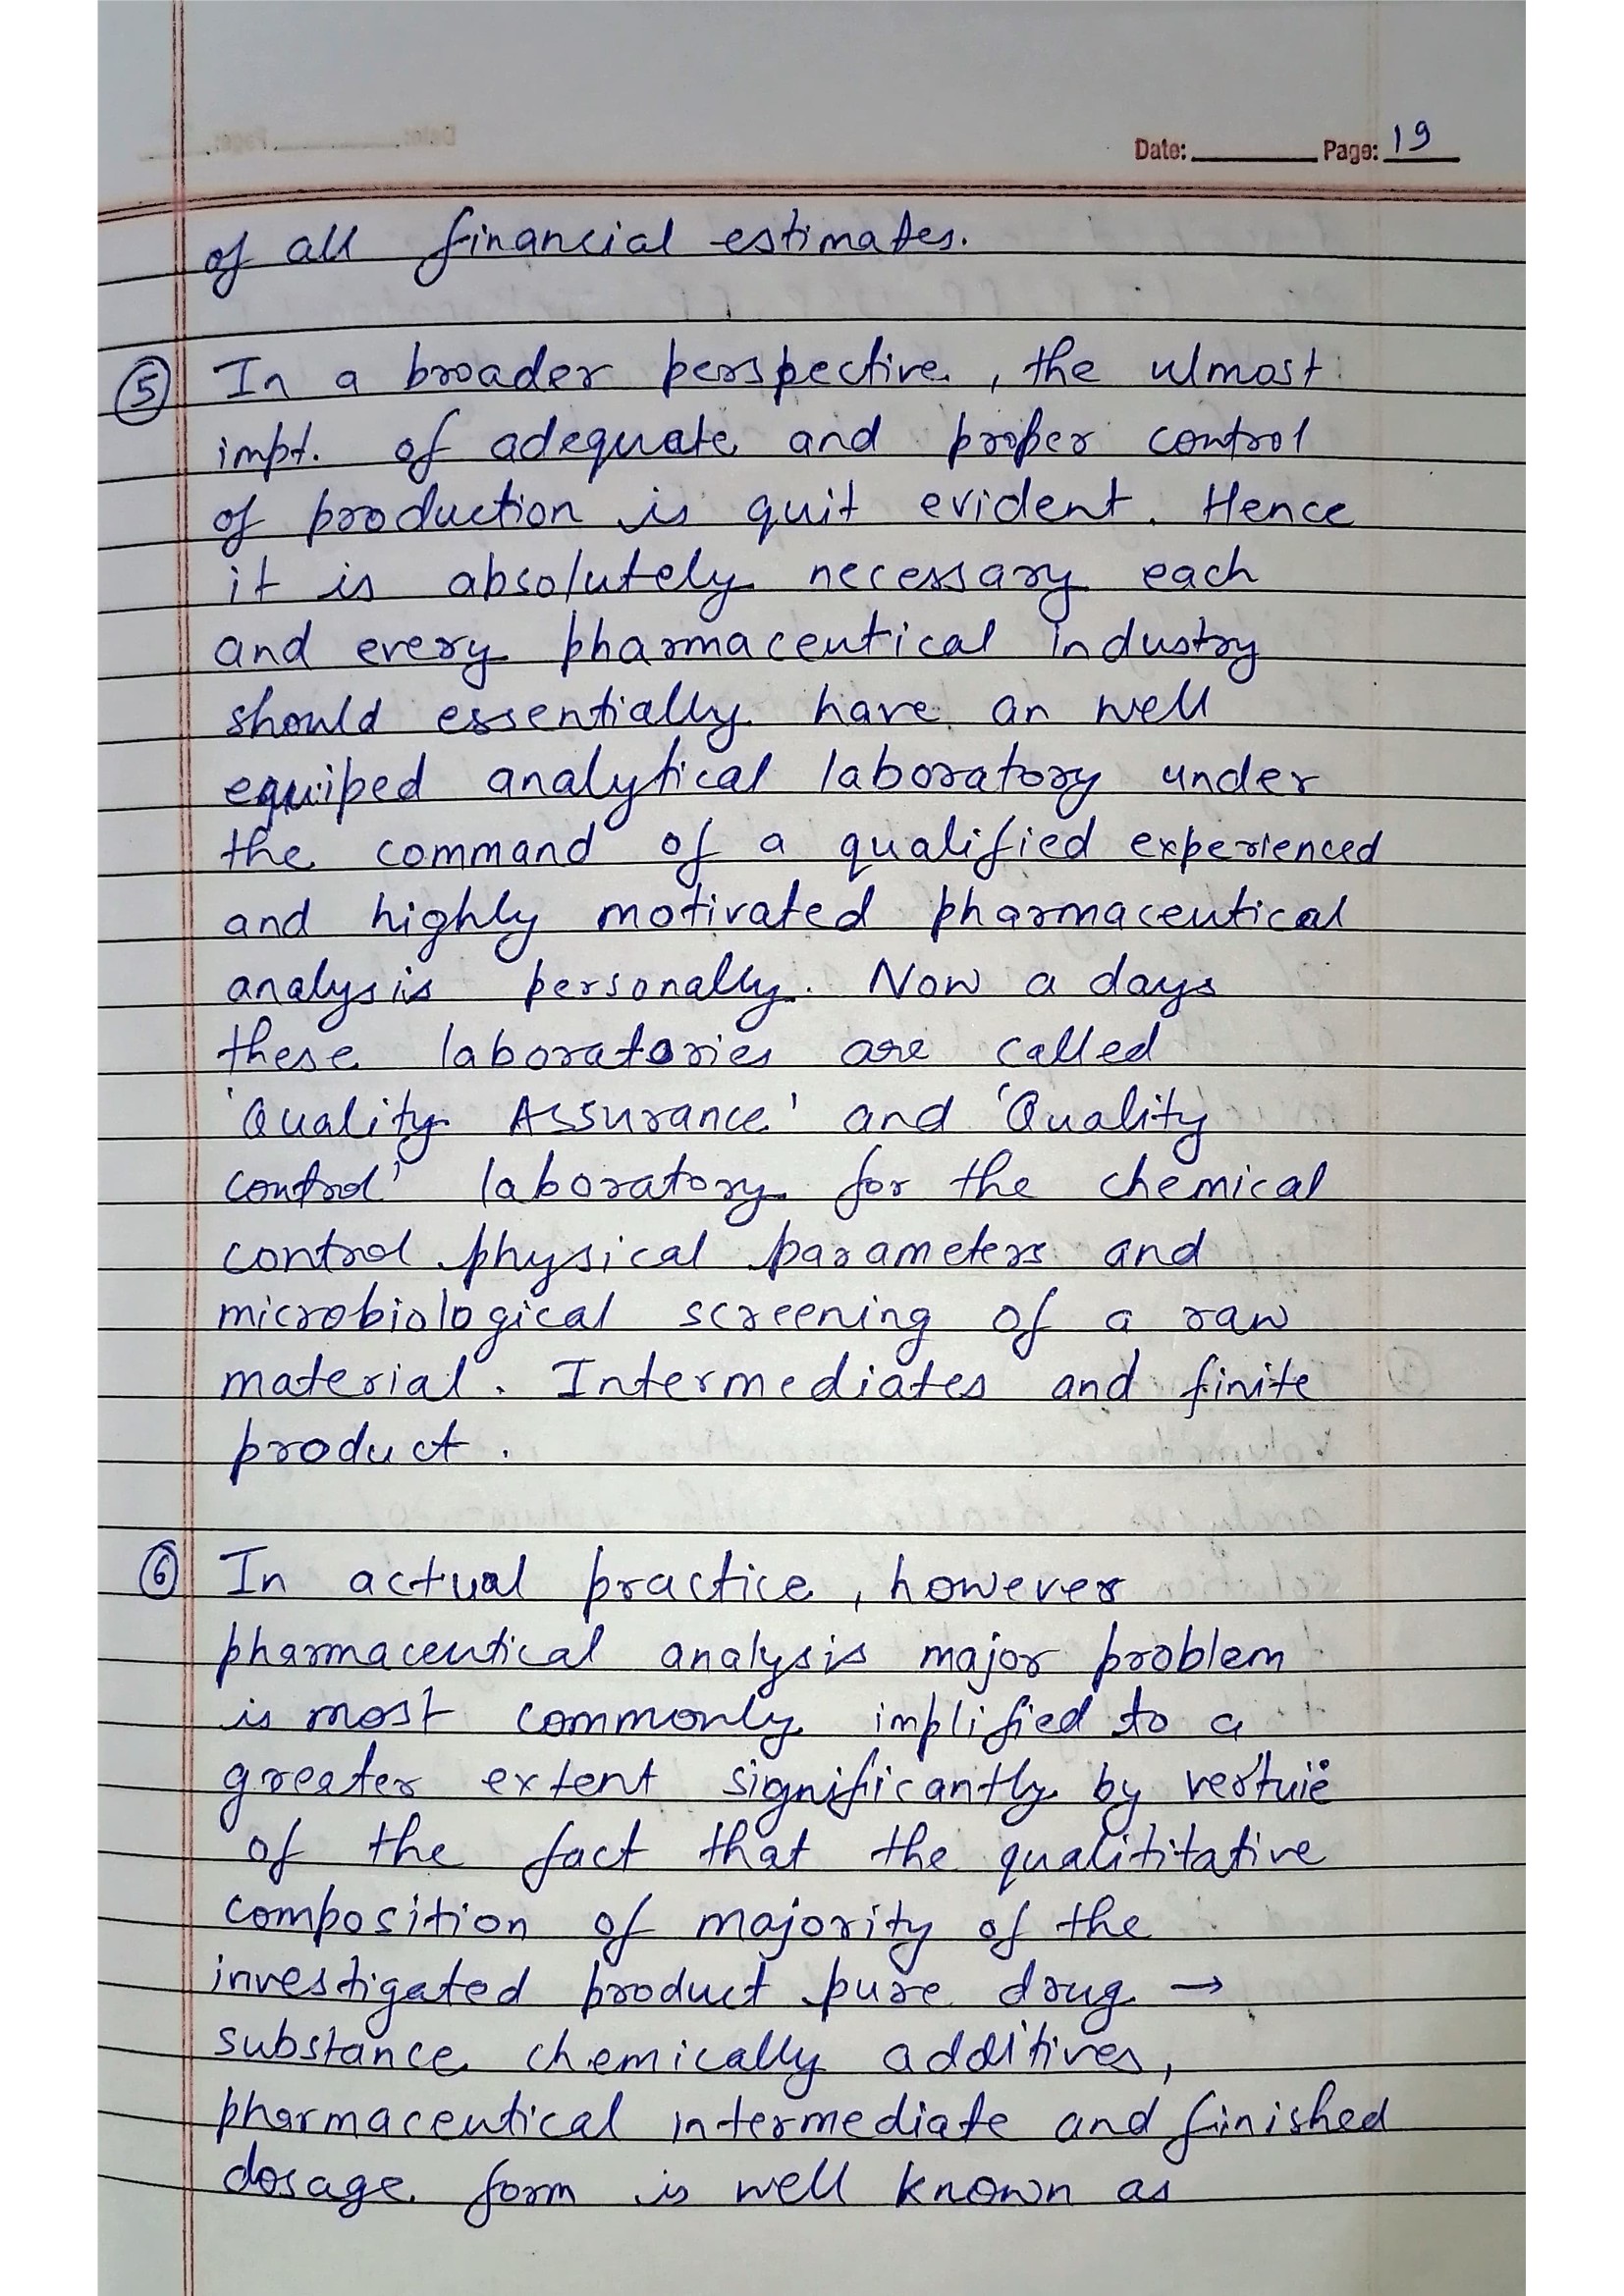 Date: Page: 19
of all financial estimates.
⑤ In a broader perspective, the ulmost
impt. of adequate and proper control
of production is quit evident. Hence
it is absolutely necessary each
and every pharmaceutical industry
should essentially have an well
equiped analytical laboratory under
the command of a qualified experienced
and highly motivated pharmaceutical
analysis personally. Now a days
these laboratories are called
'Quality Assurance' and 'Quality
control' laboratory for the chemical
control physical parameters and
microbiological screening of a raw
material. Intermediates and finite
product.
⑥ In actual practice, however
pharmaceutical analysis major problem
is most commonly implified to a
greater extent significantly by vertuie
of the fact that the qualititative
composition of majority of the
investigated product pure drug →
substance chemically additives,
pharmaceutical intermediate and finished
dosage form is well known as